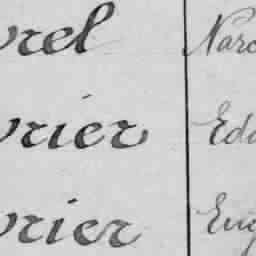 rel Narc
rier Edo
rier Eug